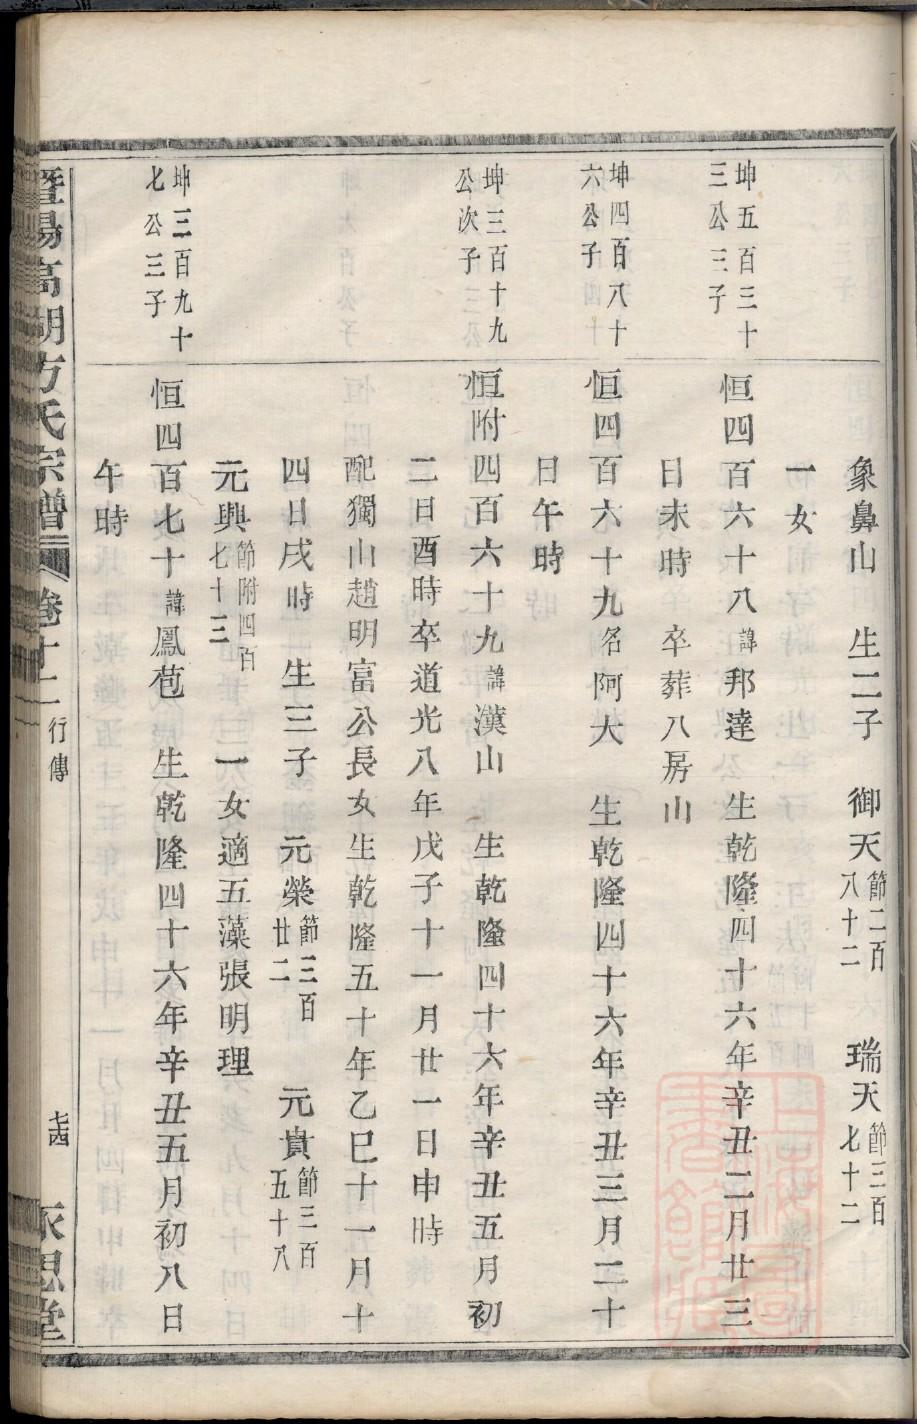 象鼻山 生二子 御天節二百八十二 瑞天節三百七十二
一女
坤五百三十三公三子
恒四百六十八諱邦達 生乾隆四十六年辛丑二月廿三
日未時 卒葬八房山
坤四百八十六公子
恒四百六十九名阿大 生乾隆四十六年辛丑三月二十
日午時
坤三百十九公次子
恒附四百六十九諱漢山 生乾隆四十六年辛丑五月初
二日酉時卒道光八年戊子十一月廿一日申時
配獨山趙明富公長女生乾隆五十年乙巳十一月十
四日戌時 生三子 元榮節三百廿二 元貴節三百五十八
元興節附四百七十三 一女適五藻張明理
坤三百九十七公三子
恒四百七十諱鳳苞 生乾隆四十六年辛丑五月初八日
午時
暨陽高湖方氏宗譜 卷十二 行傳 七四 永思堂